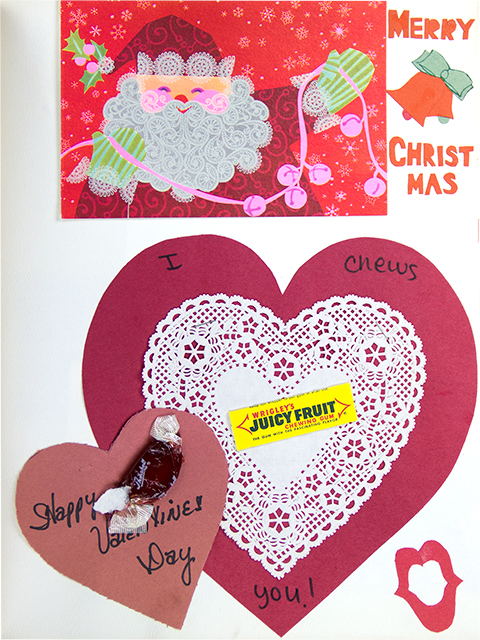 MERRY
CHRIST
MAS
I chews
WRIGLEY'S
JUICY FRUIT
CHEWING GUM
THE GUM WITH THE FASCINATING FLAVOR
Happy
Valentines
Day
you!